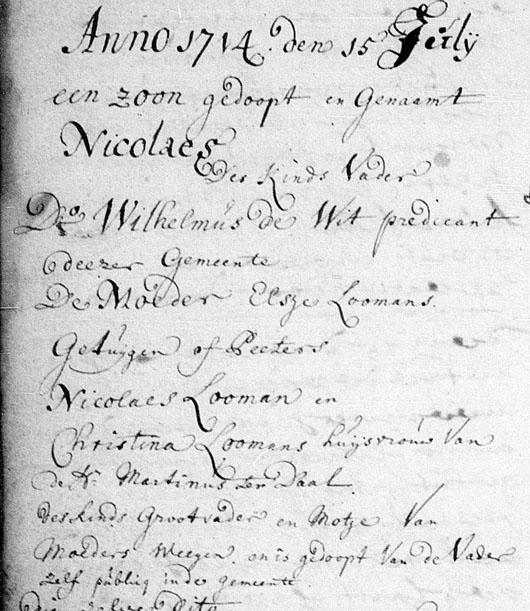 Anno 1714. den 15 Jeuly
een zoon gedoopt en Genaamt
Nicolaes
Des Kinds Vader
Do. Wilhelmüs de Wit predicant
deezer Gemeente
De Moeder Elsze Loomans.
Getuÿgen of Peeters
Nicolaes Looman en
Christina Loomans huijsvrouw Van
de Hr. Martinus ter Daal.
des kinds Grootvader en Motze Van
Moeders Weegen. en is gedoopt Van de Vader
zelf publiq in de gemeente.
dito